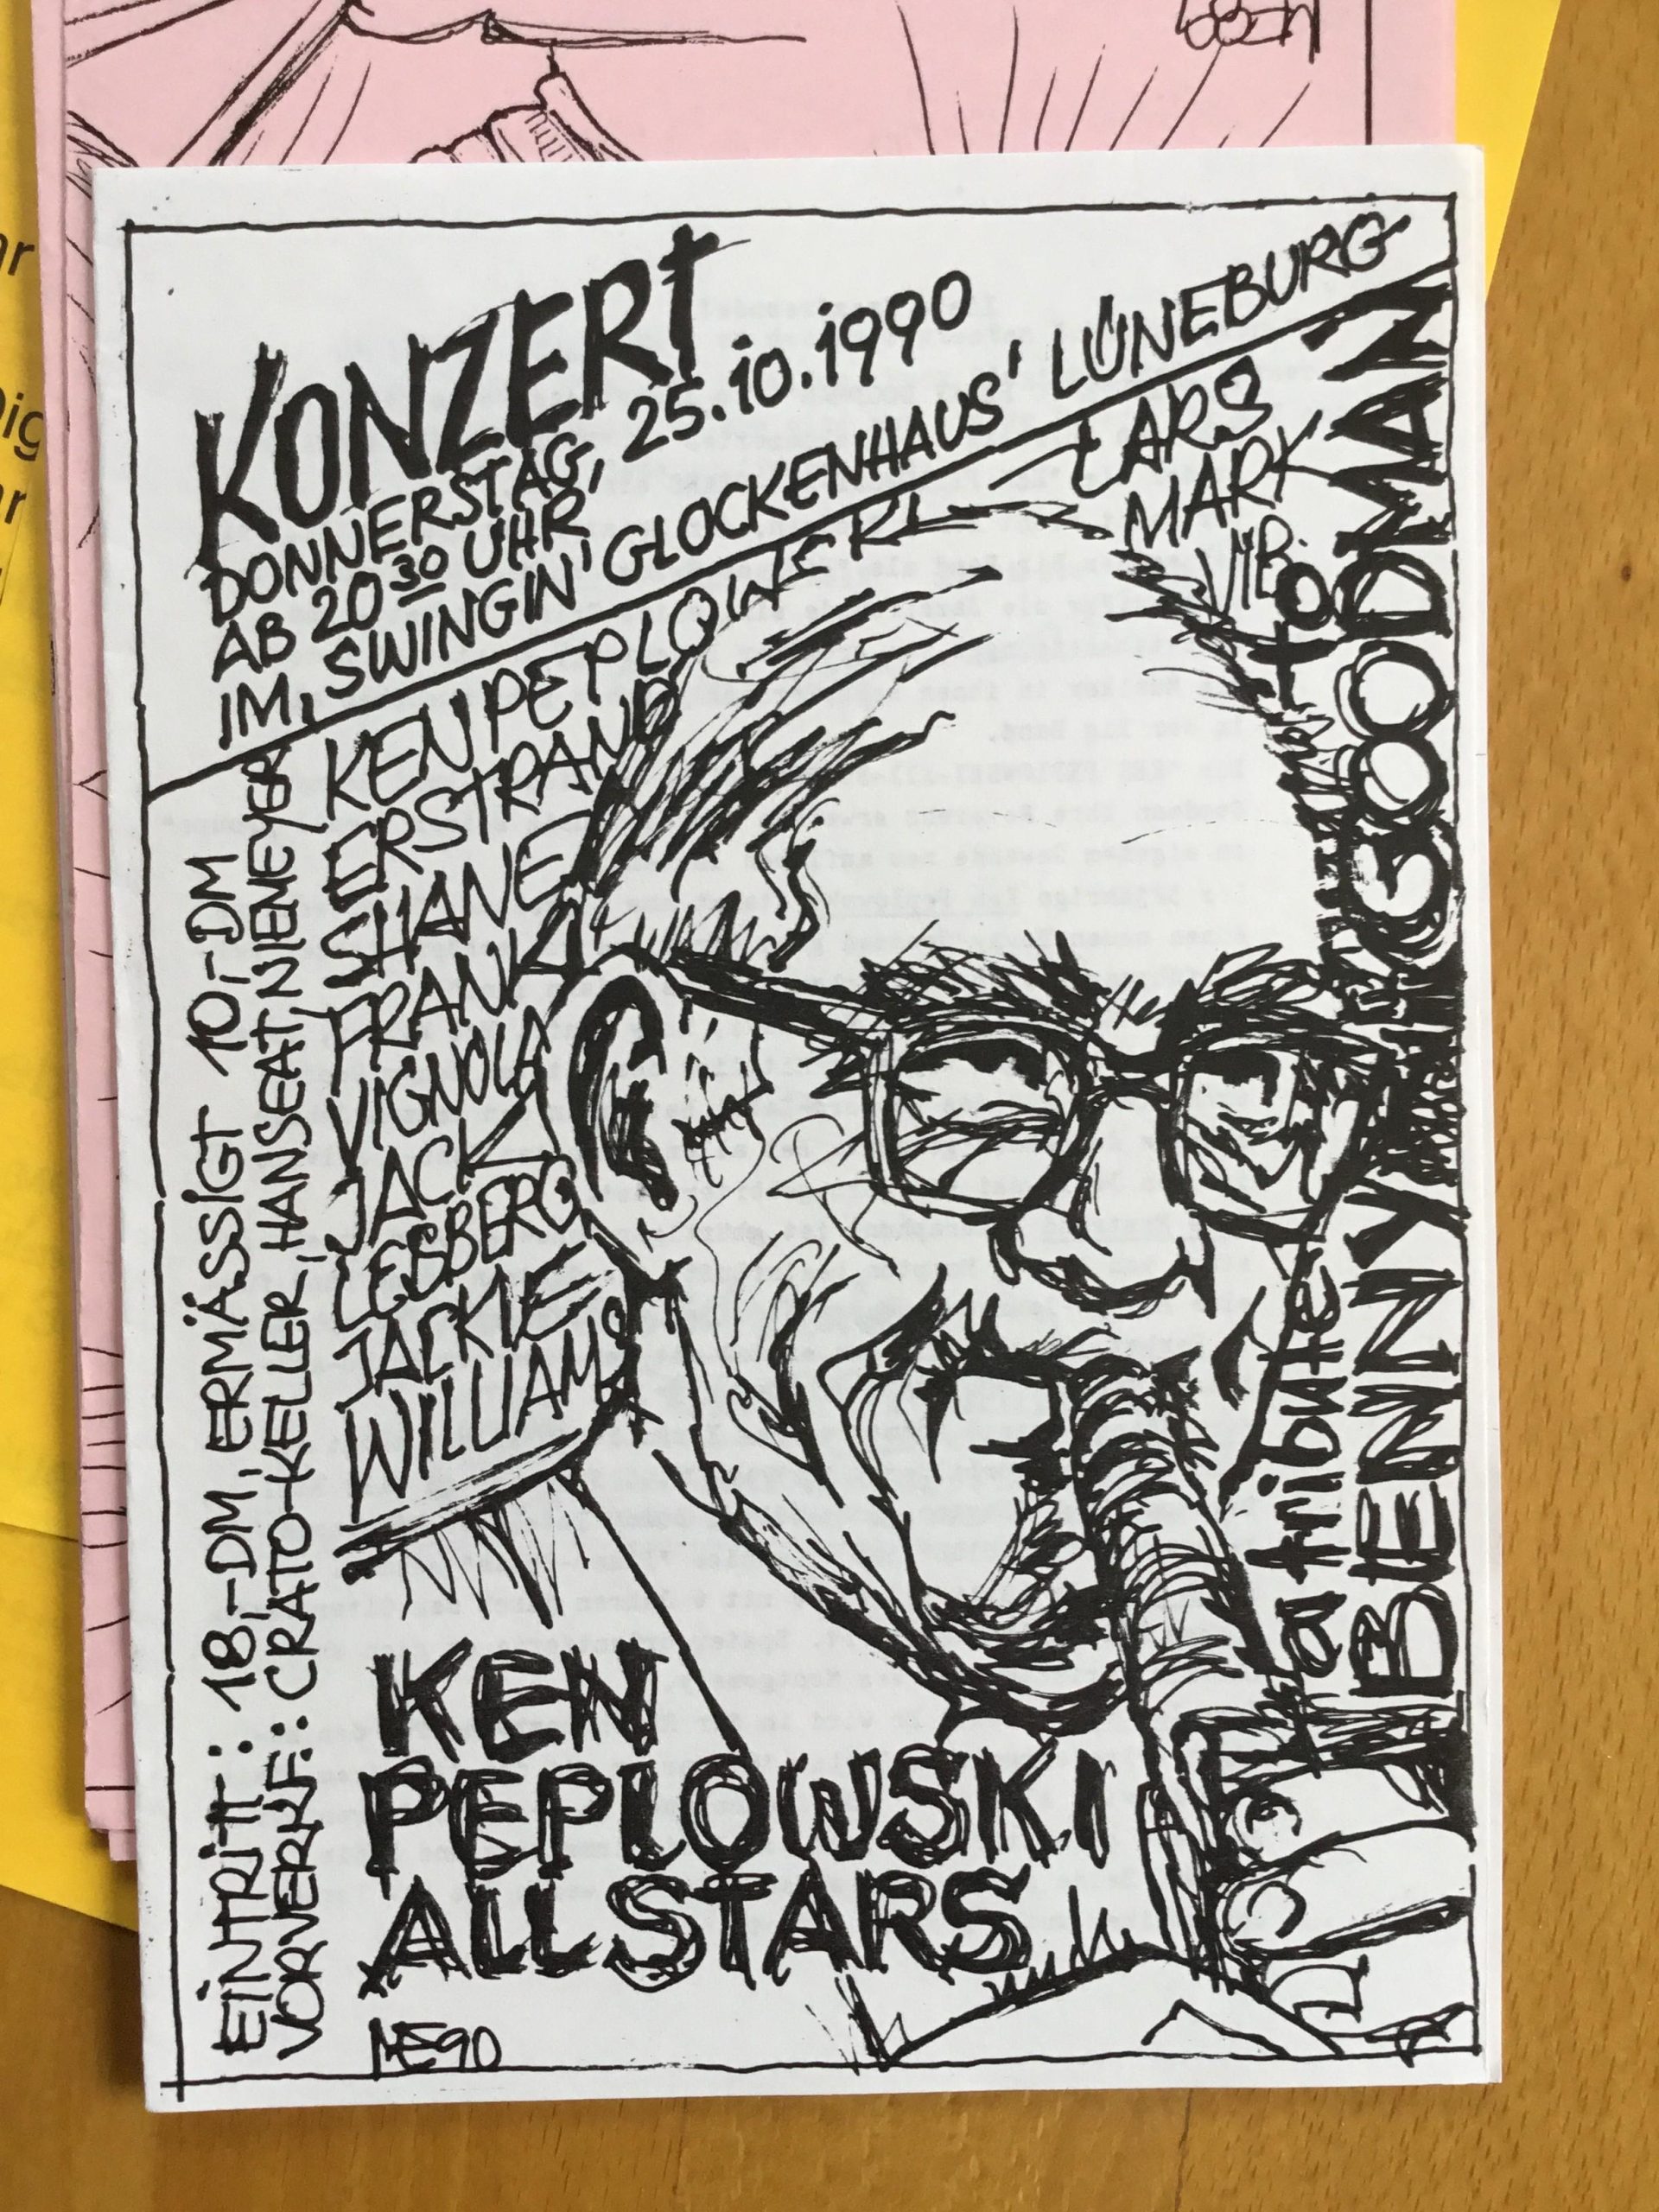 KONZERT
DONNERSTAG, 25.10.1990
AB 20³⁰ UHR
IM, SWINGIN' GLOCKENHAUS' LÜNEBURG
KEN PEPLOWSKI
LARS
ERSTRAND
MARK
SHANE
VIB.
FRANK
VIGNOLA
JACK
LESBERG
JACKIE
WILLIAMS
KEN
PEPLOWSKI
ALLSTARS
NE90
EINTRITT: 18,-DM, ERMÄSSIGT 10,-DM
VORVERK.: CRATO-KELLER, HANSEAT NIEMEYER
a tribute to
BENNY GOODMAN